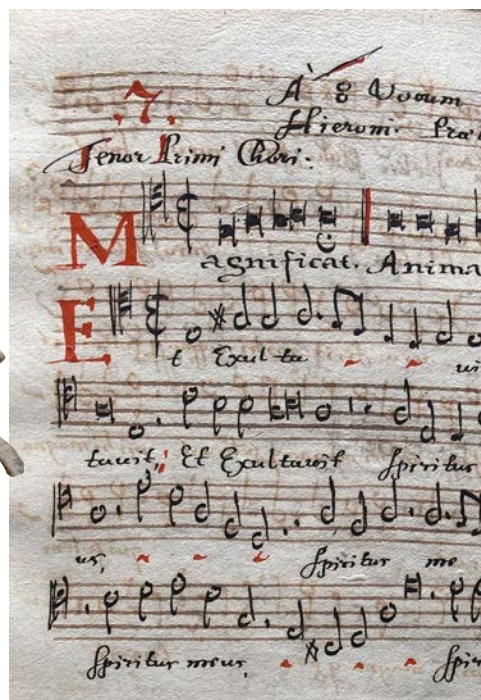 .7. A 8 Vocum
Hieroni. Præ
Tenor Primi Chori:
Magnificat. Anima
Et Exulta ui
tauit; Et Exultavit Spiritus
us, Spiritus me
Spiritus meus, Spir